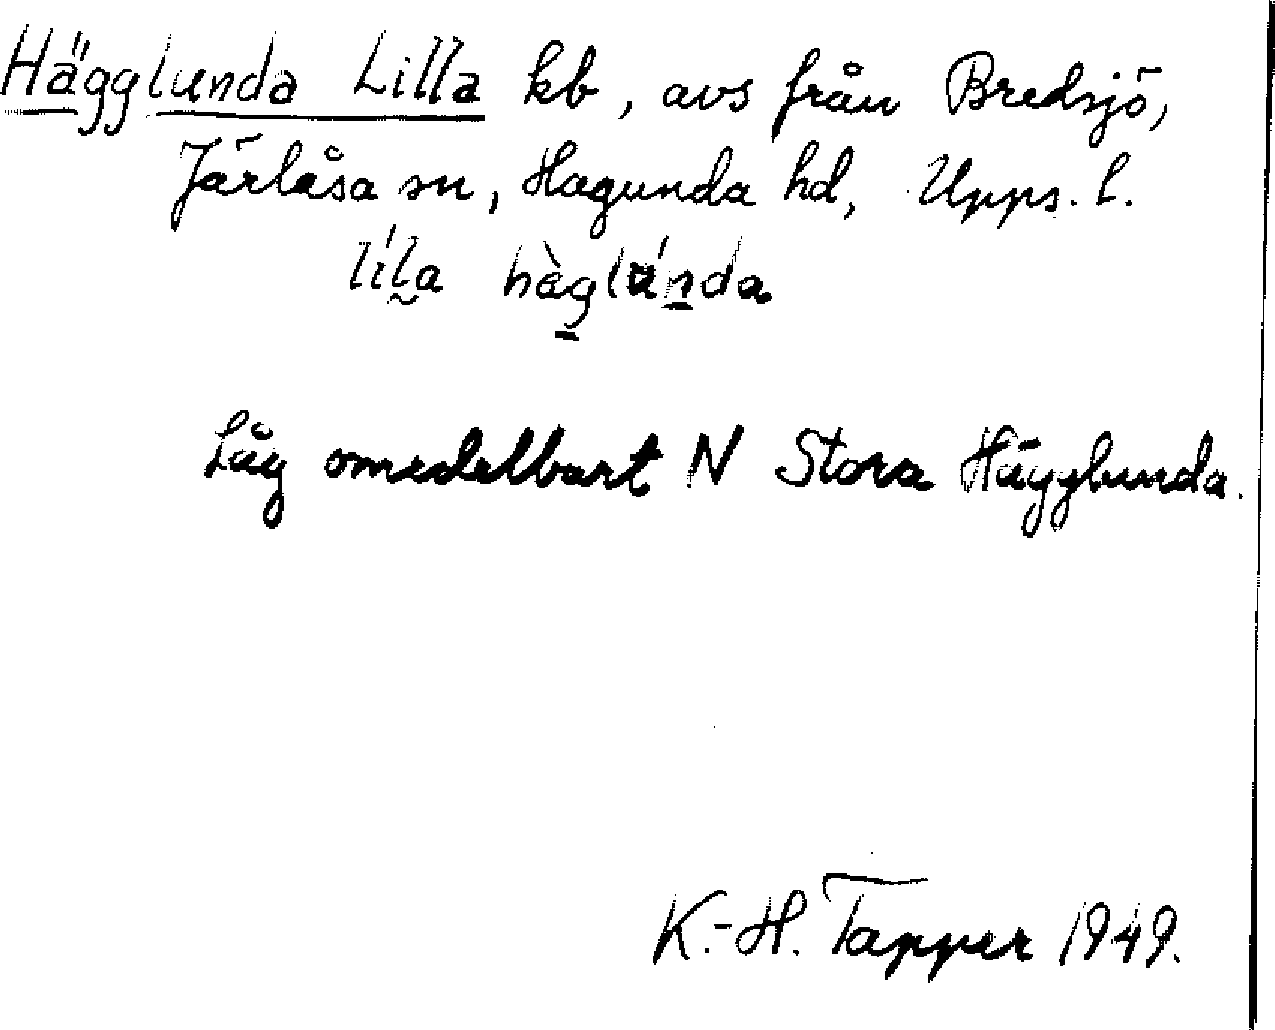 Hägglunda Lilla kb, avs från Bredsjö,
Järlåsa sn, Hagunda hd, Upps. l.
líl̰a hàg̱lúṉda
Låg omedelbart N Stora Hägglunda.
K.-H. Tapper 1949.